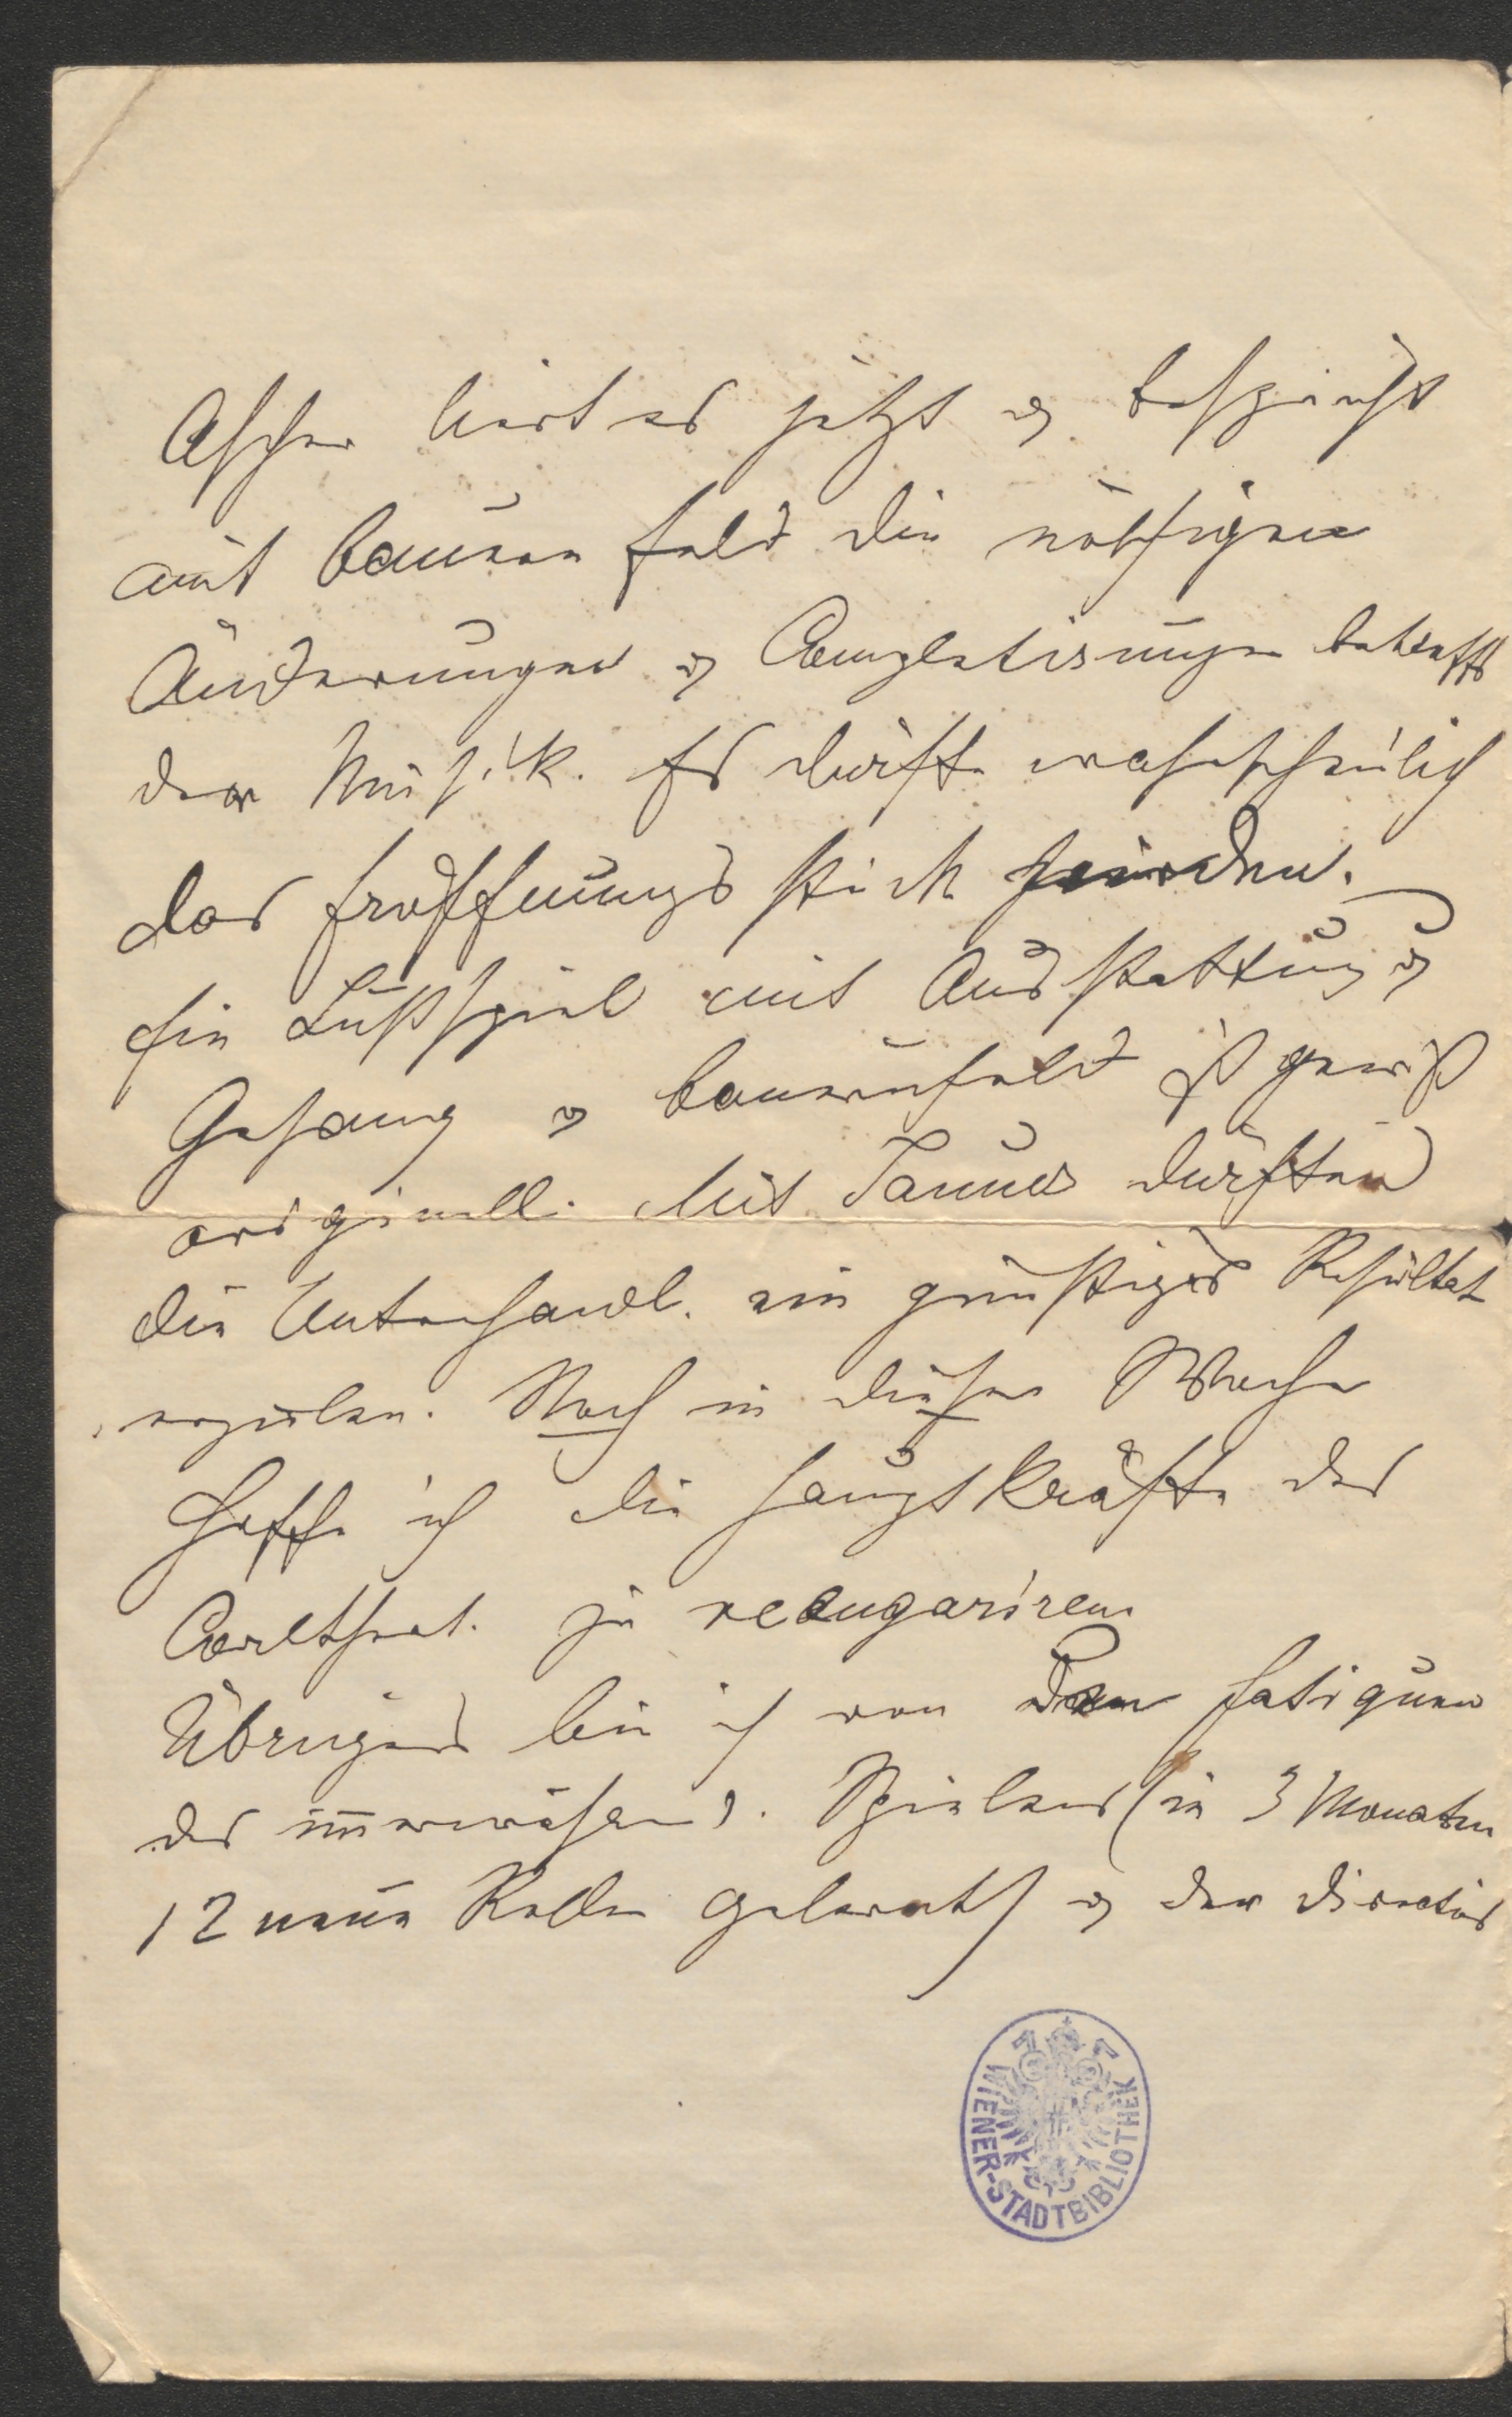 Ascher liest es jetzt u bespricht
mit Bauernfeld die nöthigen
Änderungen u Completirungen betreffs
der Musik. Es dürfte wahrscheinlich
das Eröffnungsstück werden.
Ein Lustspiel mit Ausstattung u
Gesang u Bauernfeld ist gewiß
originell. Mit dürften
die Unterhandl. ein günstiges Resultat
erzielen. Noch in dieser Woche
hoffe ich die Hauptkräfte des
Carltheat. zu reengagiren
Übrigens bin ich von den Fatiguen
des immerwähr. Spielens (in 3 Monaten
12 neue Rollen gelernt) u der Direction
WIENER-STADTBIBLIOTHEK